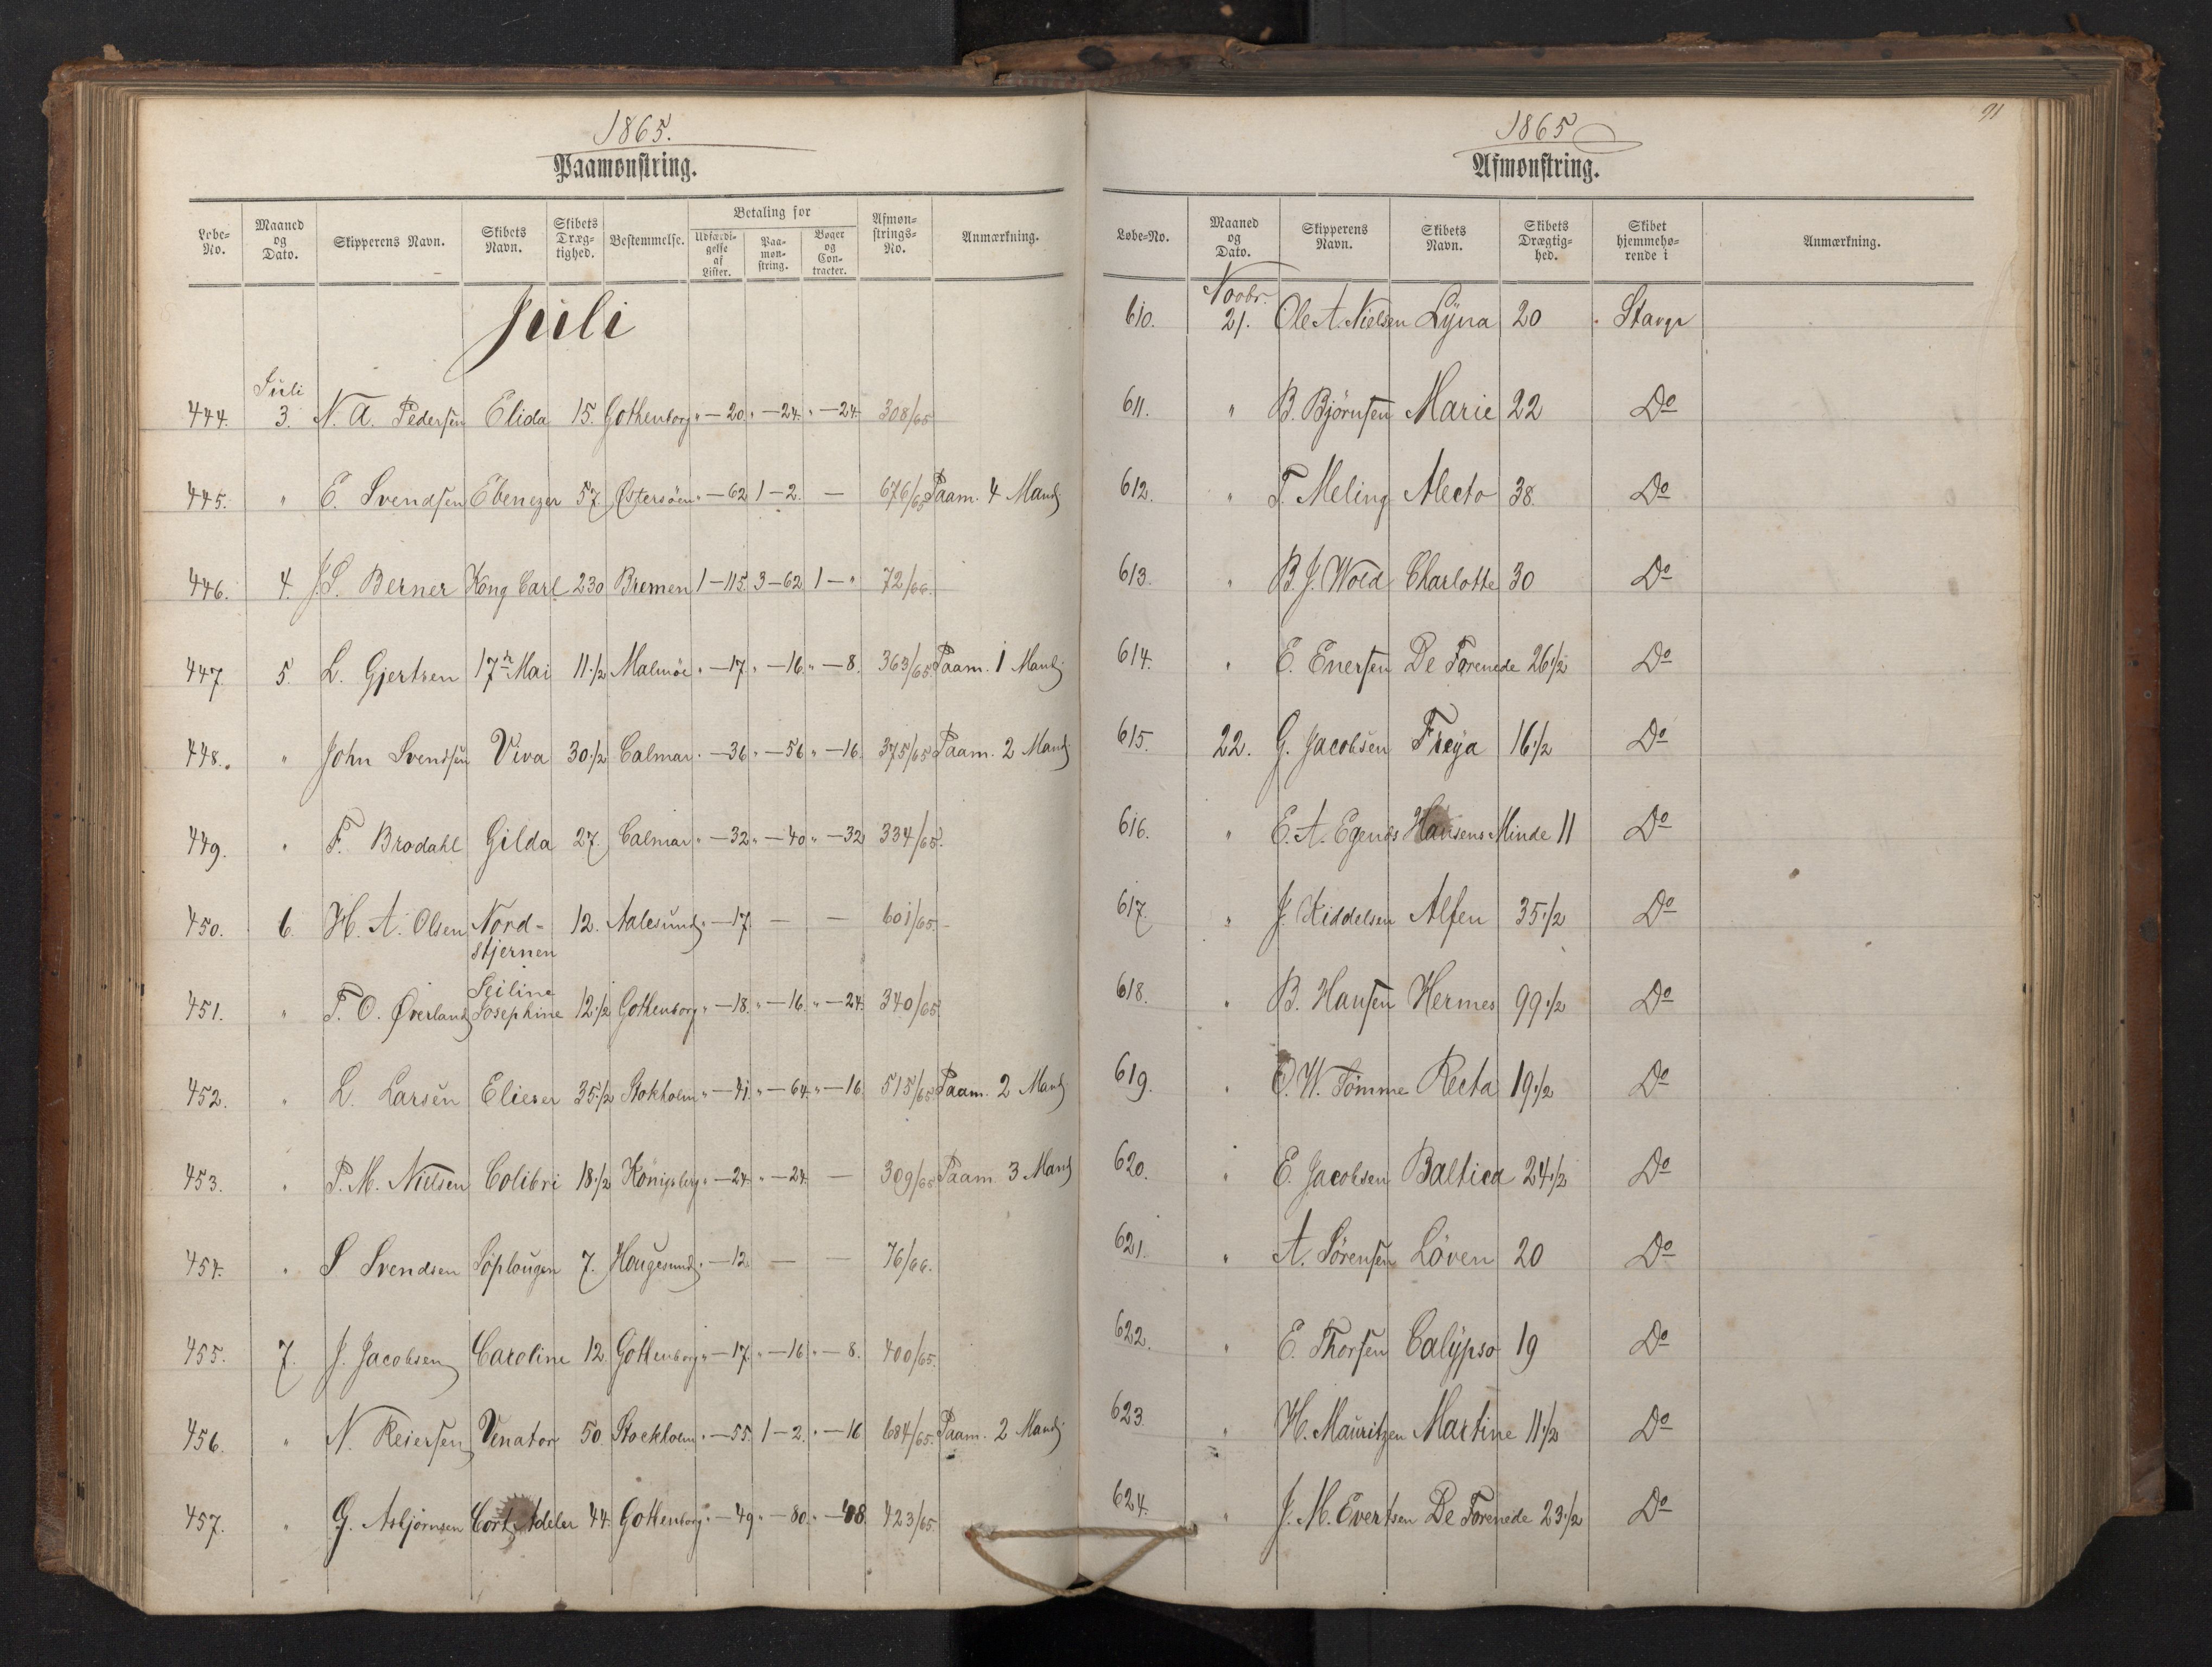 1865.
Paamønstring.
Løbe-No. Maaned og Dato. Skipperens Navn. Skibets Navn. Skibets Dræg-tighed. Bestemmelse. Betaling for Udfærdi-gelse af Lister. Paa-møn-string. Bøger og Con-tracter. Afmøn-strings-No. Anmærkning.
Juli
444. Juli 3. N. A. Pedersen Elida 15. Gothenborg " — 20. " — 24. " — 24. 308/65
445. " E. Svendsen Ebenezer 57. Østersøen " — 62 1 — 2. — 676/65 Paam. 4 Mand
446. 4. J. S. Berner Kong Carl 230 Bremen 1 — 115. 3 — 62 1 — " 72/66.
447. 5. L. Gjertsen 17de Mai 11 1/2 Malmöe " — 17. " — 16. " — 8. 363/65. Paam. 1 Mand
448. " John Svendsen Viva 30 1/2 Calmar " — 36 " — 56 " — 16. 375/65 Paam. 2 Mand
449. " F. Brodahl Gilda 27. Calmar " — 32 " — 40 " — 32 334/65.
450. 6. H. A. Olsen Nord-stjernen 12. Aalesund " — 17. — — 601/65.
451. " T. O. Øverland Seiline Josephine 12 1/2 Gothenborg " — 18. " — 16. " — 24. 340/65
452. " L. Larsen Elieser 35 1/2 Stokholm " — 41. " — 64. " — 16. 515/65 Paam. 2 Mand
453. " P. M. Nielsen Colibri 18 1/2 Königsberg " — 24. " — 24. — 309/65 Paam. 3 Mand
454. " S Svendsen Söplougen 7. Hougesund " — 12. — — 76/66.
455. 7. J. Jacobsen Caroline 12 Gothenborg " — 17. " — 16. " — 8. 400/65.
456. " N. Reiersen Venator 50. Stockholm " — 55. 1 — 2. " — 16 684/65. Paam. 2 Mand
457. " G. Asbjørnsen Cort Adeler 44. Gothenborg " — 49 " — 80. " — 423/65.
91
1865
Afmønstring.
Løbe-No. Maaned og Dato. Skipperens Navn. Skibets Navn. Skibets Drægtig-hed. Skibet hjemmehø-rende i Anmærkning.
610. Novbr. 21. Ole A. Nielsen Lyna 20 Stavgr
611. " B. Bjørnsen Marie 22 Do
612. " T. Meling Alecto 38. Do
613. " B. J. Wold Charlotte 30 Do
614. " E. Enersen De Forenede 26 1/2 Do
615. 22. G. Jacobsen Freya 16 1/2 Do
616. " E. A. Egenæs Hansens Minde 11 Do
617. " J. Kiddelsen Alfen 35 1/2 Do
618. " B. Hansen Hermes 99 1/2 Do
619. " O. W. Tömme Recta 19 1/2 Do
620. " E. Jacobsen Baltica 24 1/2 Do
621. " A. Sørensen Löven 20 Do
622. " E. Thorsen Calypso 19 Do
623. " H. Mauritzen Martine 11 1/2 Do
624. " J. M. Evertsen De Forenede 23 1/2 Do